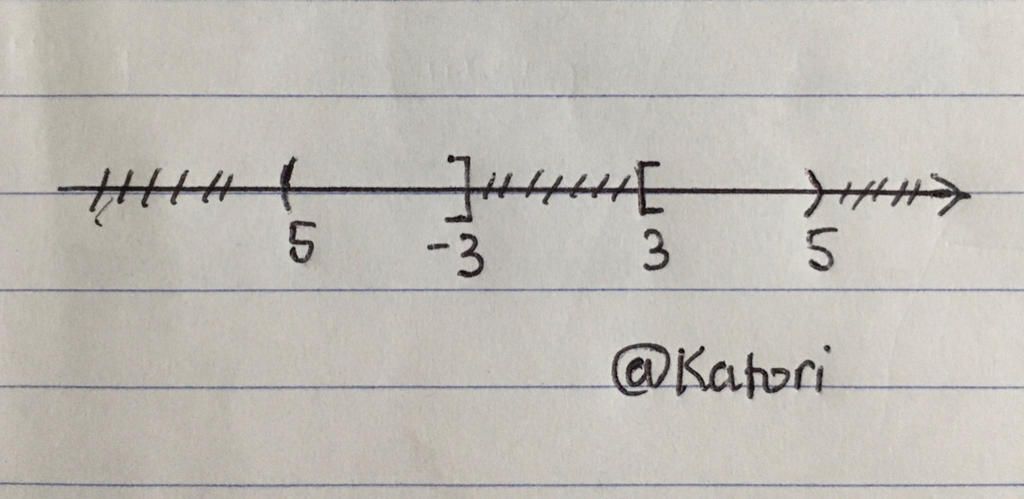 5 -3 3 5
@Katori